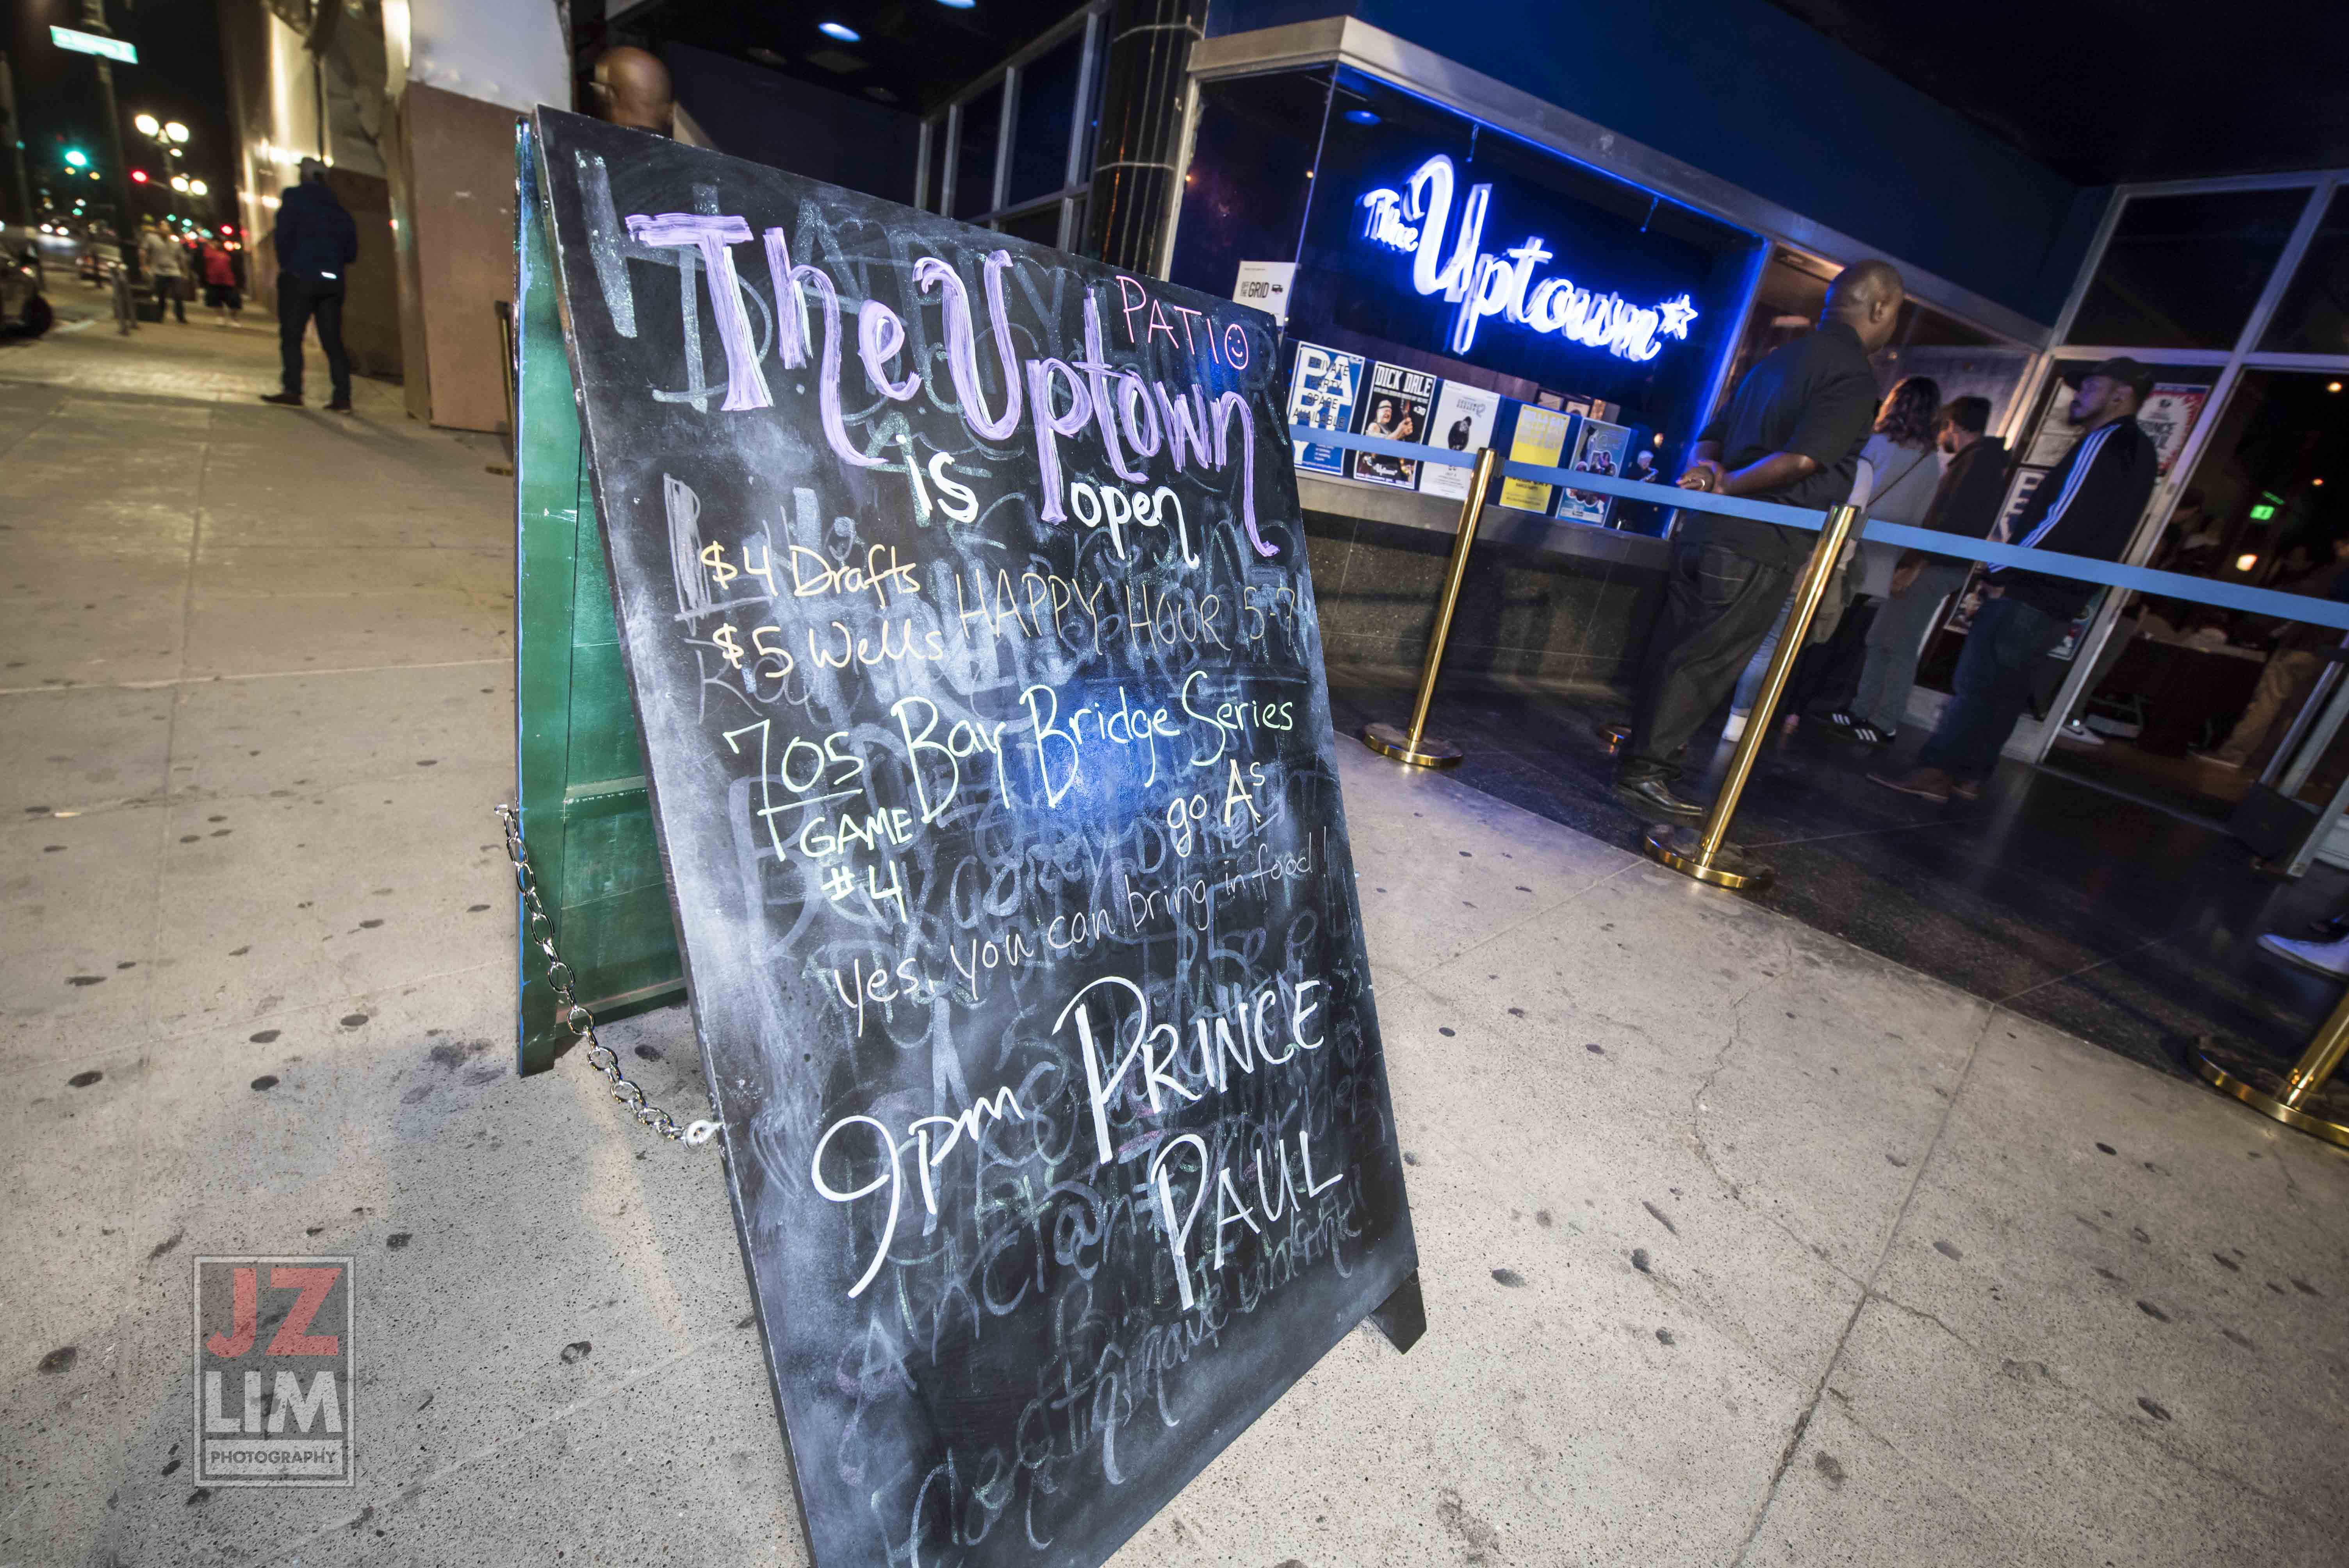 The Uptown
PATIO
is open
$4 Drafts
$5 Wells
HAPPY HOUR 5-7
705 Bay Bridge Series
GAME
#4
go As
yes, you can bring in food!
9pm PRINCE
PAUL
The Uptown
GRID
PRIVATE
PARTY
SPACE
AVAILABLE
DICK DALE
JZ
LIM
PHOTOGRAPHY